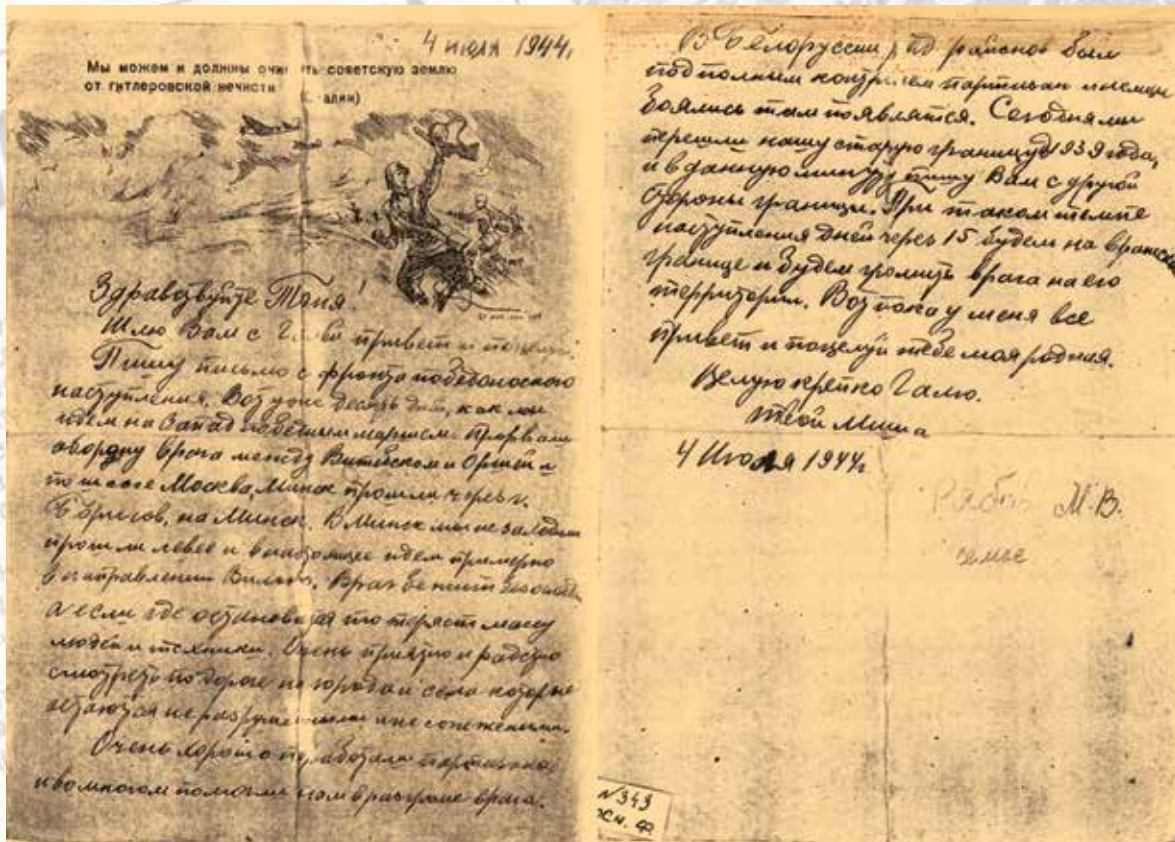 4 июля 1944г
Мы можем и должны очистить советскую землю
от гитлеровской нечисти
(Сталин)
Здравствуйте Таня!
Шлю Вам с привет и поцелуй.
Пишу письмо с фронта победоносного
наступления. Вот уже десять дней, как мы
идем на Запад победным маршем. Прорвали
оборону врага между Витебском и Оршей и
по шоссе Москва, Минск прошли через г.
Борисов, на Минск. В Минск мы не заходили
прошли левее и в настоящее идем примерно
в направлении Вильно. Враг бежит
а если где остановится то теряет массу
людей и техники. Очень приязно и радостно
смотреть по дороге на города и села которые
остаются не разрушенными и не сожженными.
Очень хорошо поработали партизаны
и во многом помогли нам в разгроме врага.
В Белоруссии ряд районов был
под полным контролем партизан и немцы
боялись там появлятся. Сегодня мы
перешли нашу старую границу 1939 года,
и в данную минуту пишу Вам с другой
стороны границы. При таком темпе
наступления дней через 15 будем на вражеской
границе и будем громить врага на его
территории. Вот пока у меня все
привет и поцелуй тебе моя родная.
Целую крепко Галю.
твой Миша
4 Июля 1944г
М.В.
семье
N343